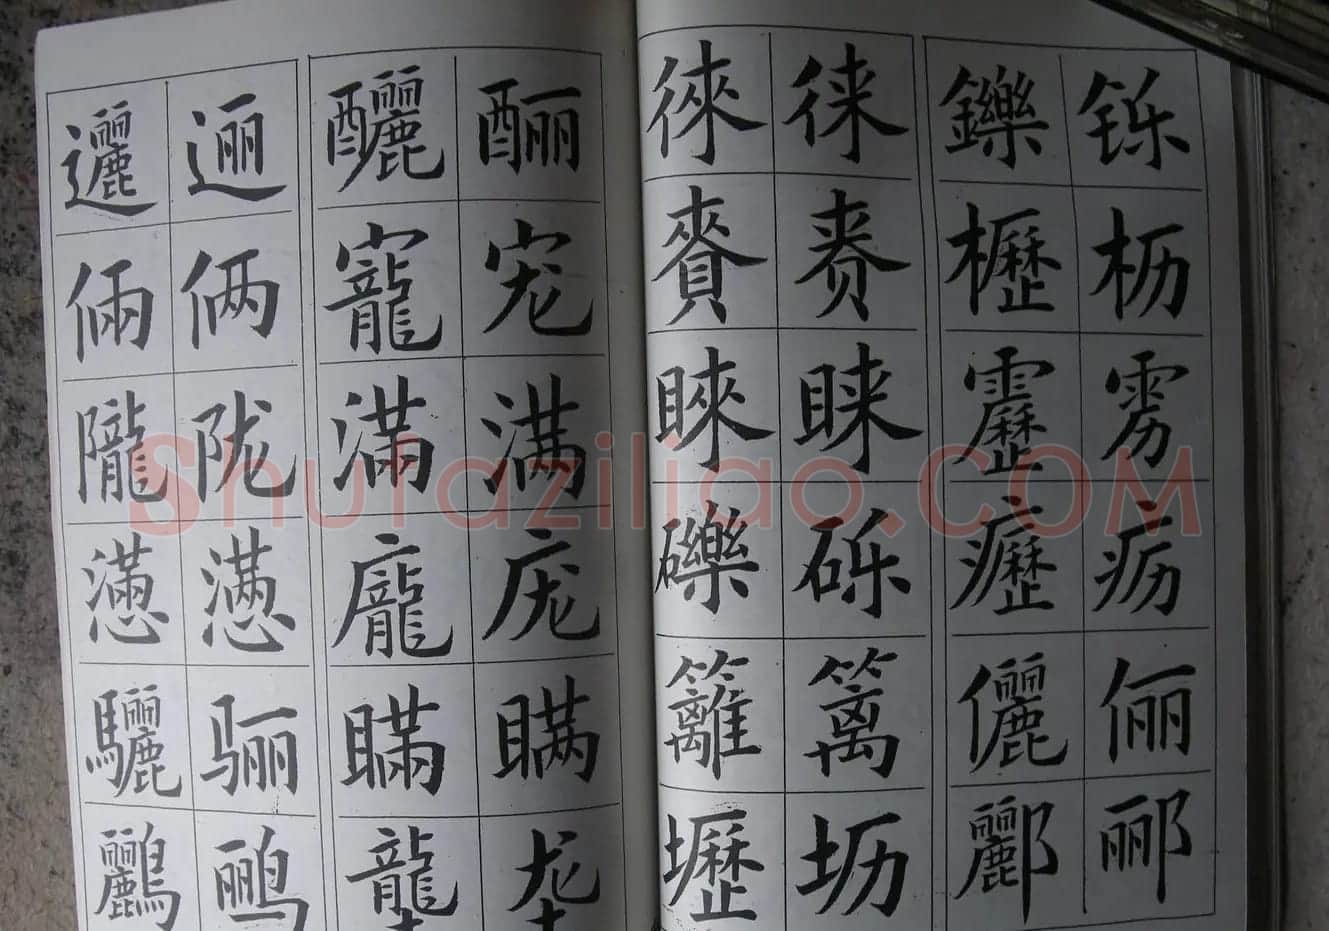 邐 逦 釃 酾 徠 徕 鑠 铄
倆 俩 寵 宠 賚 赉 櫪 枥
隴 陇 滿 满 睞 睐 靂 雳
懣 懑 龐 庞 礫 砾 癧 疬
驪 骊 瞞 瞒 籬 篱 儷 俪
鸝 鹂 壢 坜 酈 郦
Shufaziliao.COM